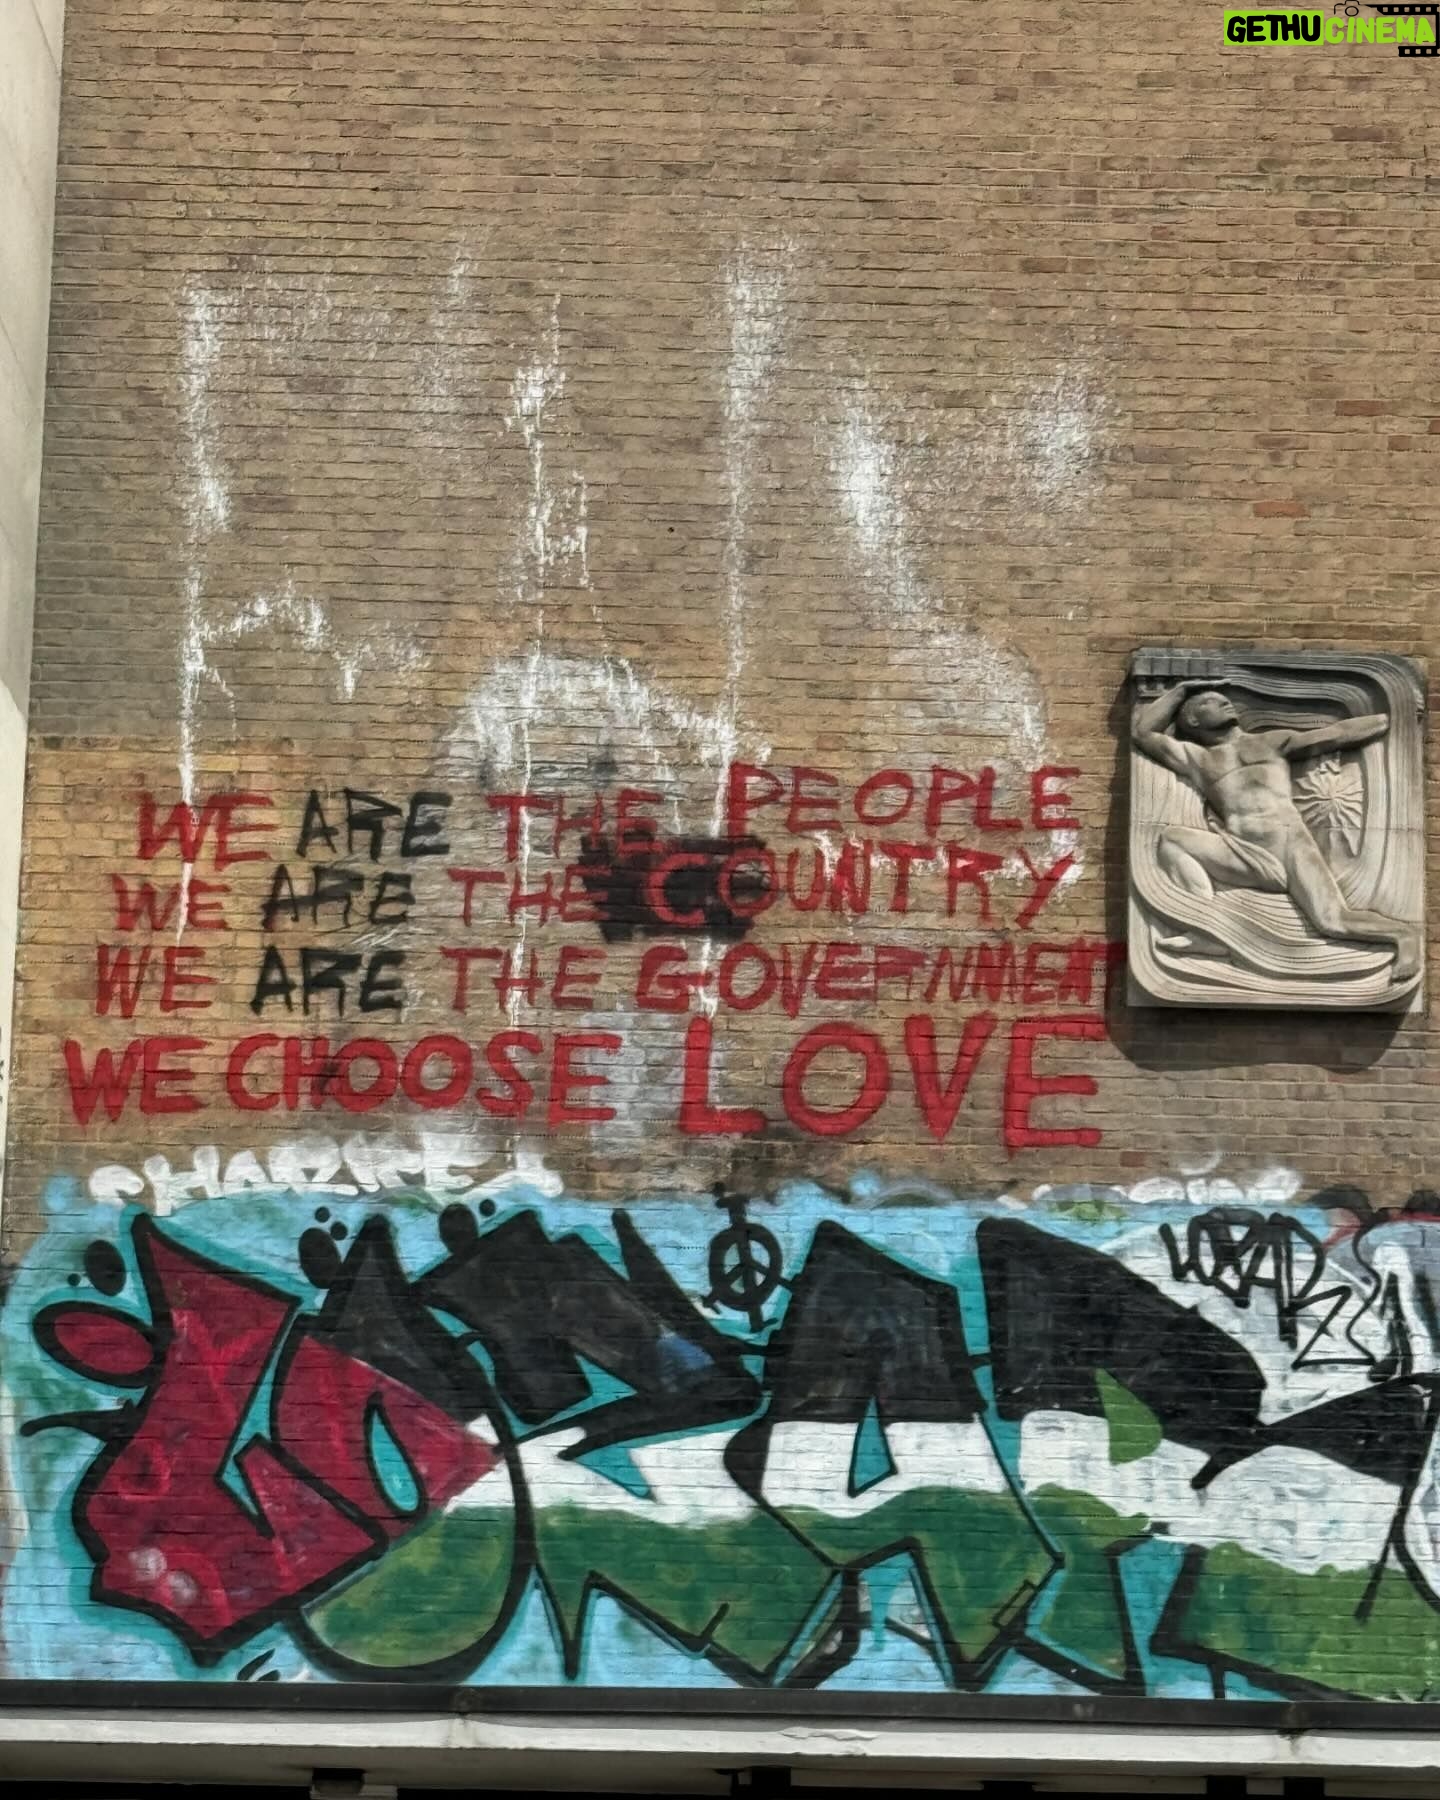 GETHUCINEMA
WE ARE THE PEOPLE
WE ARE THE COUNTRY
WE ARE THE GOVERNMENT
WE CHOOSE LOVE
LOZAR